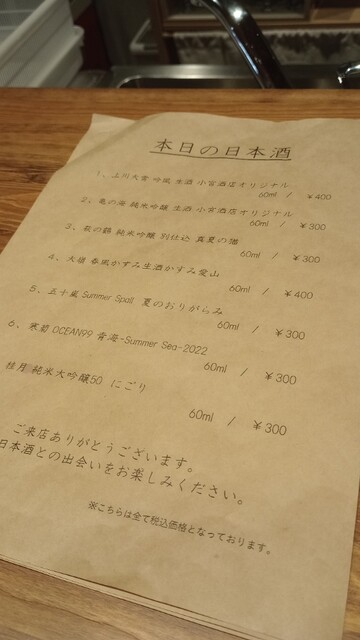 本日の日本酒
1、上川大雪 吟風 生酒 小宮酒店オリジナル
60ml / ¥400
2、亀の海 純米吟醸 生酒 小宮酒店オリジナル
60ml / ¥300
3、萩の鶴 純米吟醸 別仕込 真夏の猫
60ml / ¥300
4、大嶺 春風かすみ生酒かすみ愛山
60ml / ¥400
5、五十嵐 Summer Spall 夏のおりがらみ
60ml / ¥300
6、寒菊 OCEAN99 青海-Summer Sea-2022
60ml / ¥300
桂月 純米大吟醸50 にごり
60ml / ¥300
ご来店ありがとうございます。
日本酒との出会いをお楽しみください。
※こちらは全て税込価格となっております。